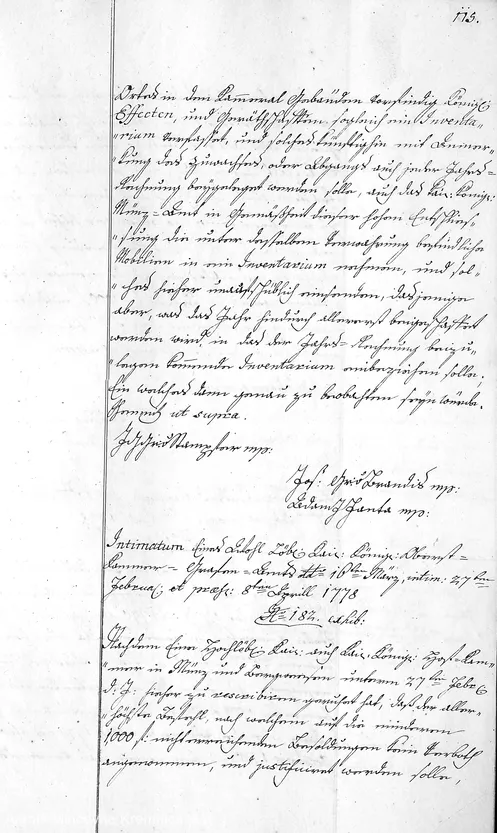 115.
Ortes in den Kammeral Gebäuden vorfindig Königl:
Effecten, und Geräthschaften sogleich ein Inventa-
"rium verfasset, und solches künftighin mit Anmer-
"kung des Zuwachses, oder Abgangs auch jeder Jahrs-
Rechnung beygeleget werden solle, auch das kais: königl:
Münz-Amt in Gemäßheit dieser hohen Entschlies-
"sung die unter desselben Verwahrung befindliche
Mobilien in ein Inventarium nehmen, und sol-
"ches hieher einsenden, dasjenige
aber, was das Jahr hindurch allererst beigeschaffet
werden wird, in das der Jahrs-Rechnung beizu-
"legen kommende Inventarium einbeziehen solle,
Ein welches dann genau zu beobachten seyn würde.
ut supra.
Stampfer mp:
Jos: Brandis mp:
Adam mp:
Intimatum Eines Löbl: Kais: Königl: Oberst-
Kammer-Grafen-Amts dd= 16ten März, intim: 27ten
Februar: et præs: 8ten Aprill 1778
No 182. exhib:
Nachdem Eine Hochlöbl: Kais: auch Kais: Königl: Hof-Kam-
"mer in Münz und Bergwesen unterm 27ten Febr:
d: J: hieher zu rescribiren geruhet hat, daß der aller-
"höchste Befehl, nach welchem auf die mindern
1000 f: nicht erreichenden Besoldungen kein Verboth
angenommen, und justificiret werden solle,